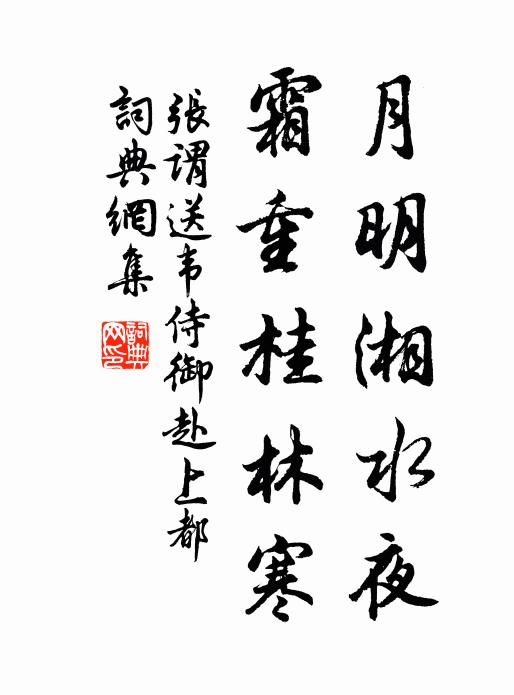 月明湘水夜
霜重桂林寒
張謂送韦侍御赴上都
詞典網集
詞典网印